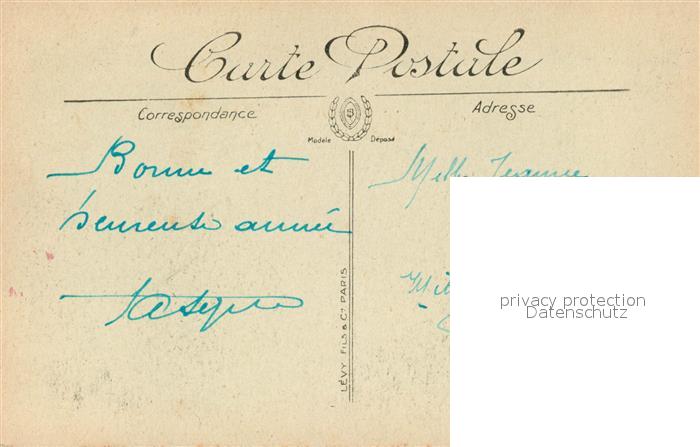 Carte Postale
Correspondance
Adresse
Modèle Déposé
Bonne et
heureuse année
Mlle Jeanne
LÉVY FILS & Cie PARIS
privacy protection
Datenschutz